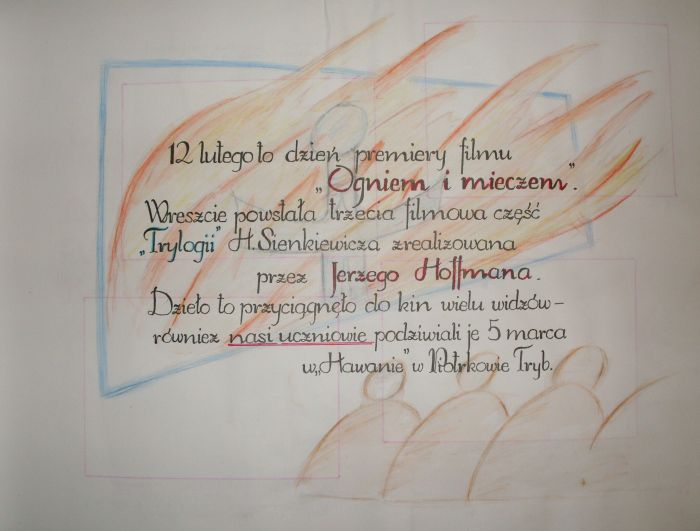 12 lutego to dzień premiery filmu
„Ogniem i mieczem".
Wreszcie powstała trzecia filmowa część
„Trylogii" H. Sienkiewicza zrealizowana
przez Jerzego Hoffmana.
Dzieło to przyciągnęło do kin wielu widzów –
również nasi uczniowie podziwiali je 5 marca
w „Hawanie" w Piotrkowie Tryb.